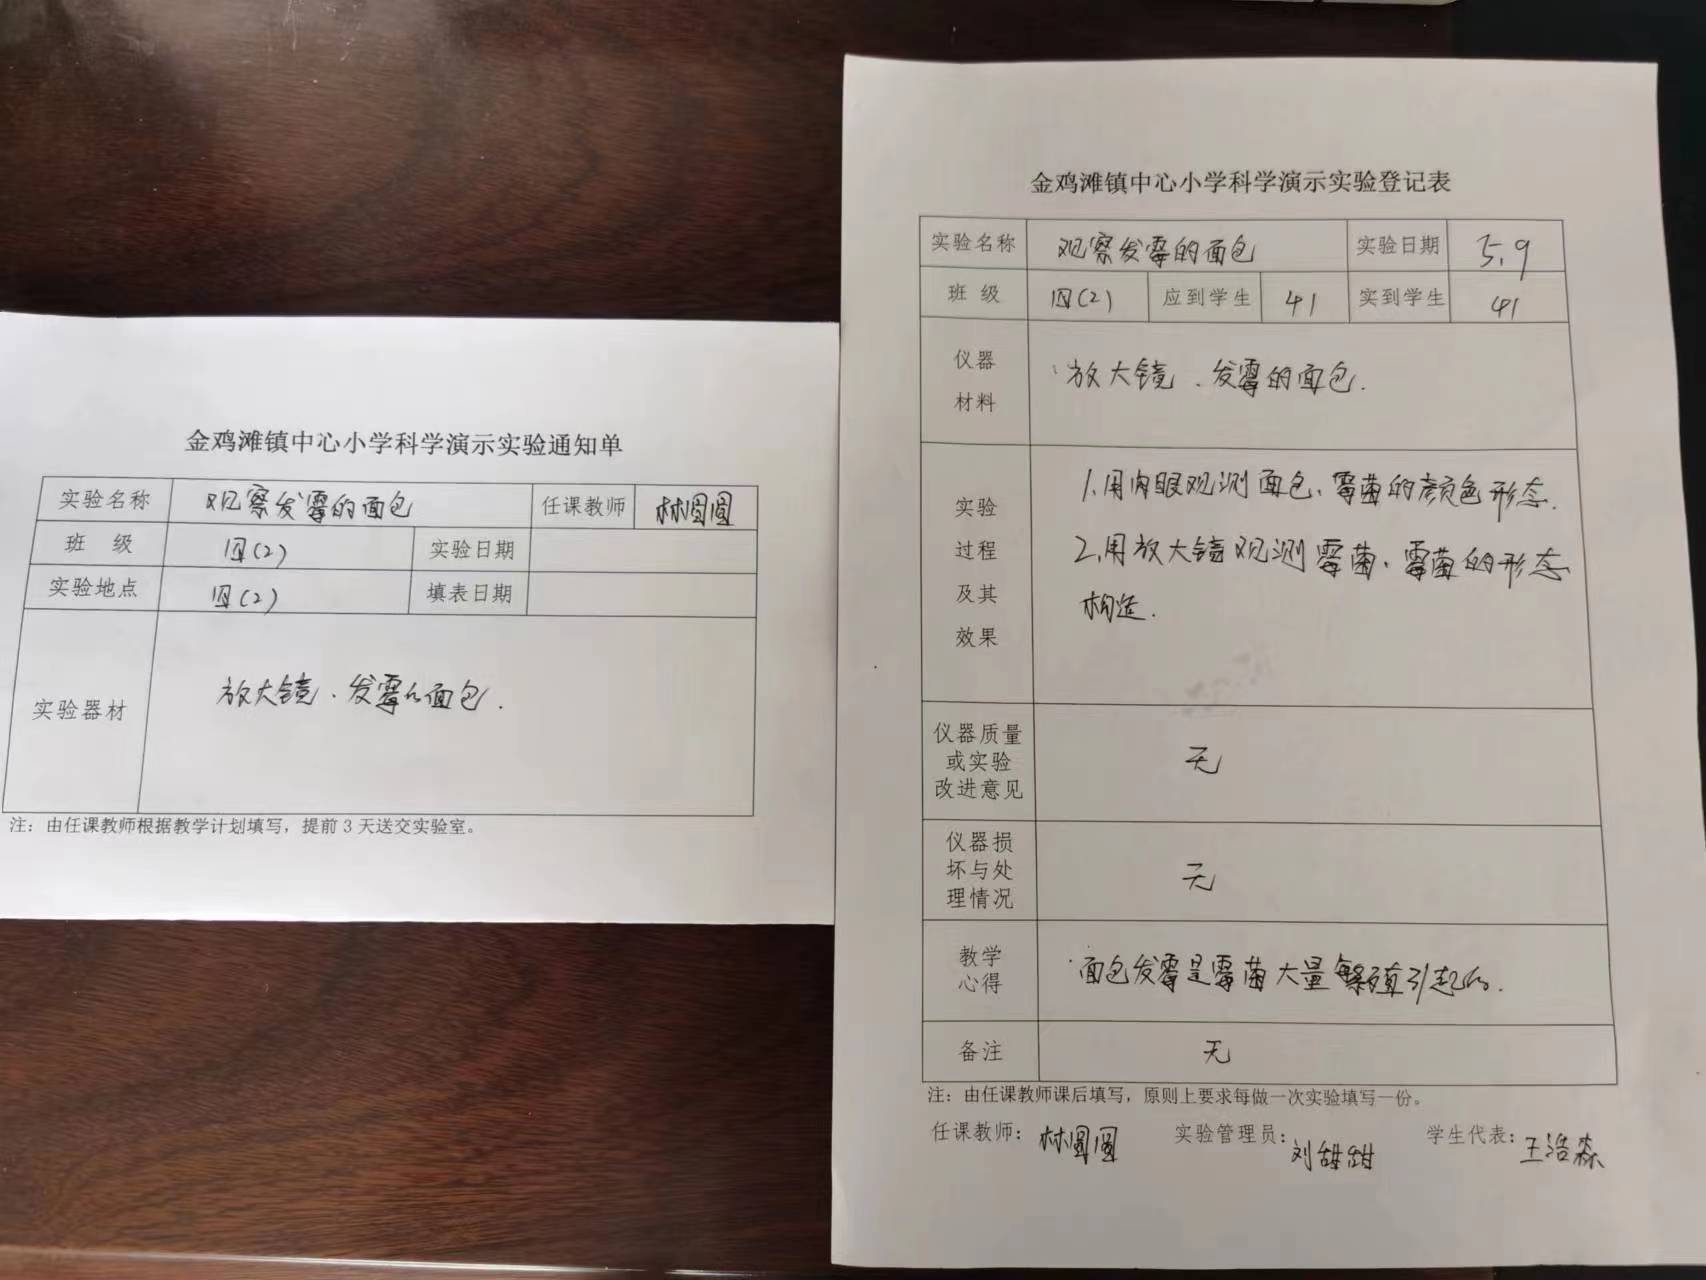 金鸡滩镇中心小学科学演示实验通知单
实验名称 观察发霉的面包 任课教师 林圆圆
班 级 四(2) 实验日期
实验地点 四(2) 填表日期
实验器材 放大镜、发霉的面包.
注：由任课教师根据教学计划填写，提前3天送交实验室。
金鸡滩镇中心小学科学演示实验登记表
实验名称 观察发霉的面包 实验日期 5.9
班 级 四(2) 应到学生 41 实到学生 41
仪器
材料
放大镜、发霉的面包.
实验
过程
及其
效果
1.用肉眼观测面包、霉菌的颜色形态.
2.用放大镜观测霉菌、霉菌的形态
构造.
仪器质量
或实验
改进意见
无
仪器损
坏与处
理情况
无
教学
心得
面包发霉是霉菌大量繁殖引起的.
备注 无
注：由任课教师课后填写，原则上要求每做一次实验填写一份。
任课教师：林圆圆 实验管理员：刘甜甜 学生代表：王浩森